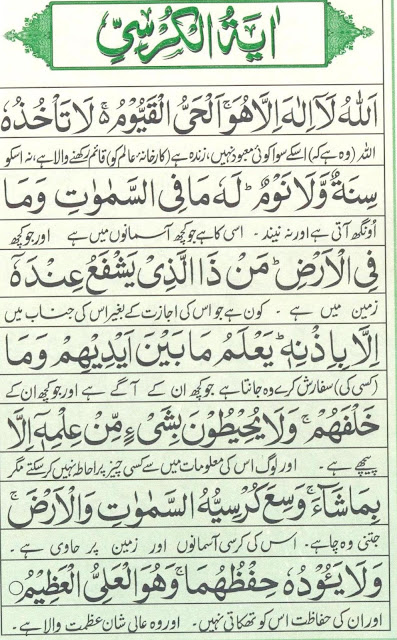 اٰيَةُ الْكُرْسِيّ
اَللّٰهُ لَاۤ اِلٰهَ اِلَّا هُوَۚ اَلْحَىُّ الْقَيُّوْمُ ۚ لَا تَاْخُذُهٗ
اللہ (وہ ہے کہ) اسکے سوا کوئی معبود نہیں، زندہ ہے (کارخانۂ عالم کو) قائم رکھنے والا ہے، نہ اسکو
سِنَةٌ وَّلَا نَوْمٌ ؕ لَهٗ مَا فِى السَّمٰوٰتِ وَمَا
اُونگھ آتی ہے اور نہ نیند ۔ اسی کا ہے جو کچھ آسمانوں میں ہے اور جو کچھ
فِى الْاَرْضِ ؕ مَنْ ذَا الَّذِىْ يَشْفَعُ عِنْدَهٗۤ
زمین میں ہے ۔ کون ہے جو اس کی اجازت کے بغیر اس کی جناب میں
اِلَّا بِاِذْنِهٖ ؕ يَعْلَمُ مَا بَيْنَ اَيْدِيْهِمْ وَمَا
(کسی کی) سفارش کرے وہ جانتا ہے جو کچھ ان کے آگے ہے اور جو کچھ ان کے
خَلْفَهُمْ ۚ وَلَا يُحِيْطُوْنَ بِشَىْءٍ مِّنْ عِلْمِهٖۤ اِلَّا
پیچھے ہے ۔ اور لوگ اس کی معلومات میں سے کسی چیز پر احاطہ نہیں کر سکتے مگر
بِمَا شَآءَ ۚ وَسِعَ كُرْسِيُّهُ السَّمٰوٰتِ وَالْاَرْضَ ۚ
جتنی وہ چاہے ۔ اس کی کرسی آسمانوں اور زمین پر حاوی ہے ۔
وَلَا يَـُٔوْدُهٗ حِفْظُهُمَا ۚ وَهُوَ الْعَلِىُّ الْعَظِيْمُ ۝
اور ان کی حفاظت اس کو تھکاتی نہیں ۔ اور وہ عالی شان عظمت والا ہے ۔